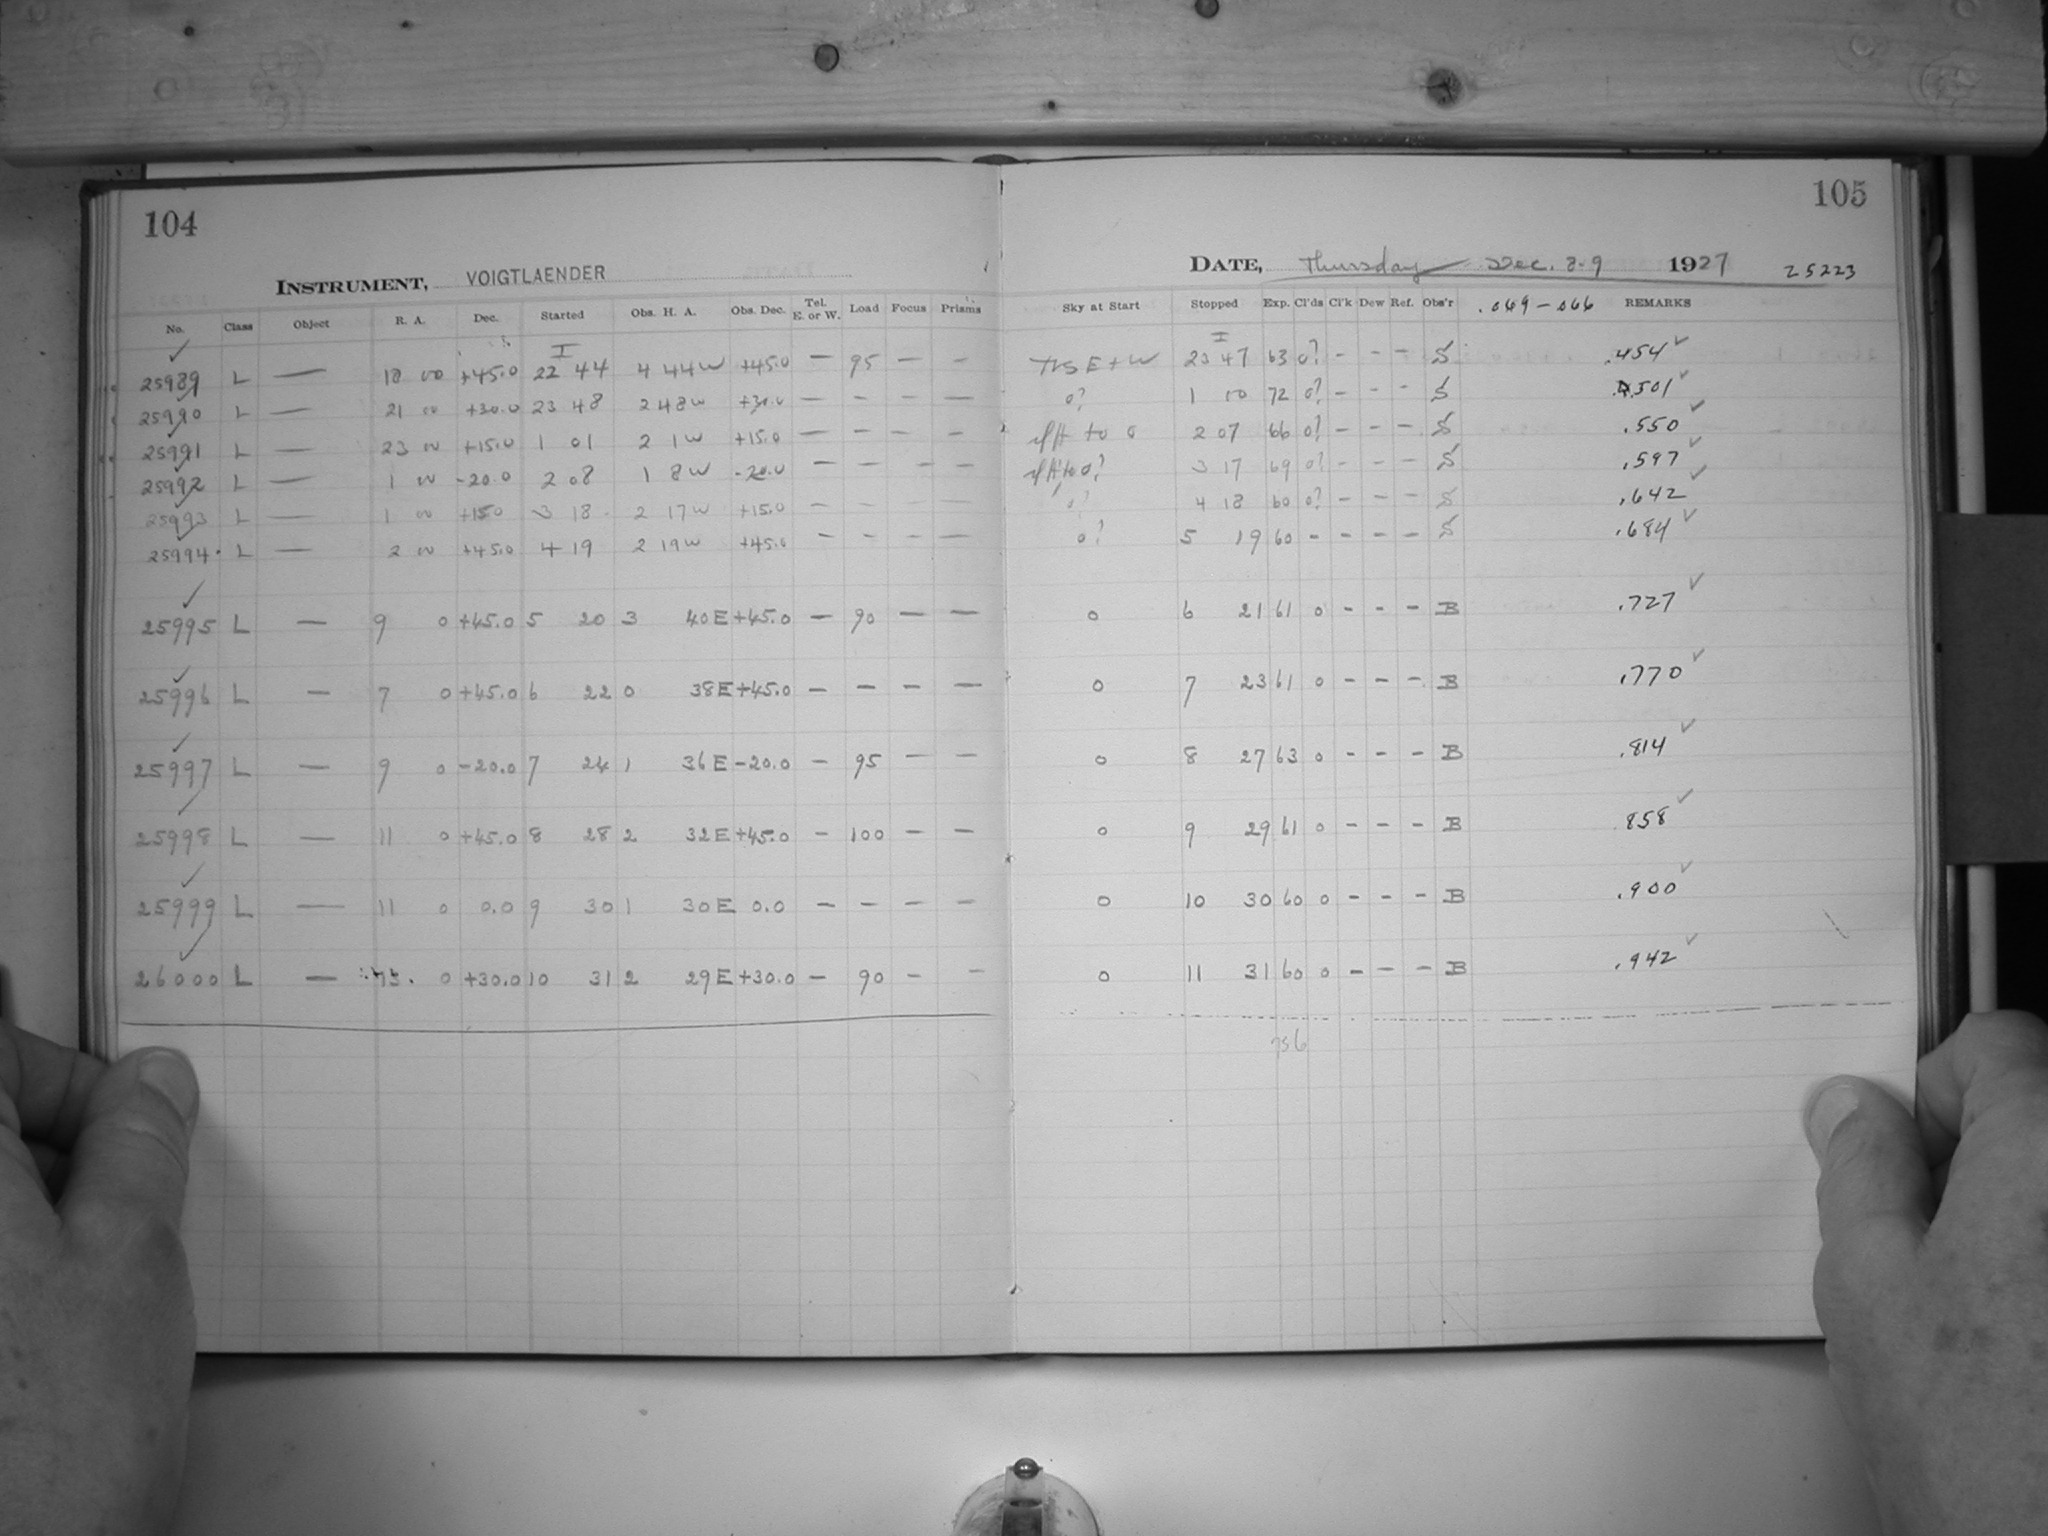 104
105
INSTRUMENT, VOIGTLAENDER
DATE, Thursday Dec. 8-9 1927 25223
No. Class Object R. A. Dec. Started Obs. H. A. Obs. Dec. Tel. E. or W. Load Focus Prisms Sky at Start Stopped Exp. Cl'ds Cl'k Dew Ref. Obs'r .069-.066 REMARKS
I I
25989 L — 18 00 +45.0 22 44 4 44W +45.0 — 95 — — E+W 23 47 63 0? - - - S .454 ✓
25990 L — 21 00 +30.0 23 48 2 48W +30.0 — - - — 0? 1 00 72 0? - - - S .501 ✓
25991 L — 23 00 +15.0 1 01 2 1W +15.0 — — - — to 0 2 07 66 0? - - - S .550 ✓
25992 L — 1 00 -20.0 2 08 1 8W -20.0 — - - — to 0? 3 17 69 0? - - - S .597 ✓
25993 L — 1 00 +15.0 3 18 2 17W +15.0 - - 0? 4 18 60 0? - - - S .642 ✓
25994 L — 2 00 +45.0 4 19 2 19W +45.0 - - - — 0? 5 19 60 - - - - S .684 ✓
25995 L — 9 0 +45.0 5 20 3 40E +45.0 — 90 — — 0 6 21 61 0 - - - B .727 ✓
25996 L — 7 0 +45.0 6 22 0 38E +45.0 — — — — 0 7 23 61 0 - - - B .770 ✓
25997 L — 9 0 -20.0 7 24 1 36E -20.0 — 95 — — 0 8 27 63 0 - - - B .814 ✓
25998 L — 11 0 +45.0 8 28 2 32E +45.0 — 100 — — 0 9 29 61 0 - - - B 858 ✓
25999 L — 11 0 0.0 9 30 1 30E 0.0 — — — — 0 10 30 60 0 - - - B .900 ✓
26000 L — 13. 0 +30.0 10 31 2 29E +30.0 — 90 — — 0 11 31 60 0 - - - B .942 ✓
756